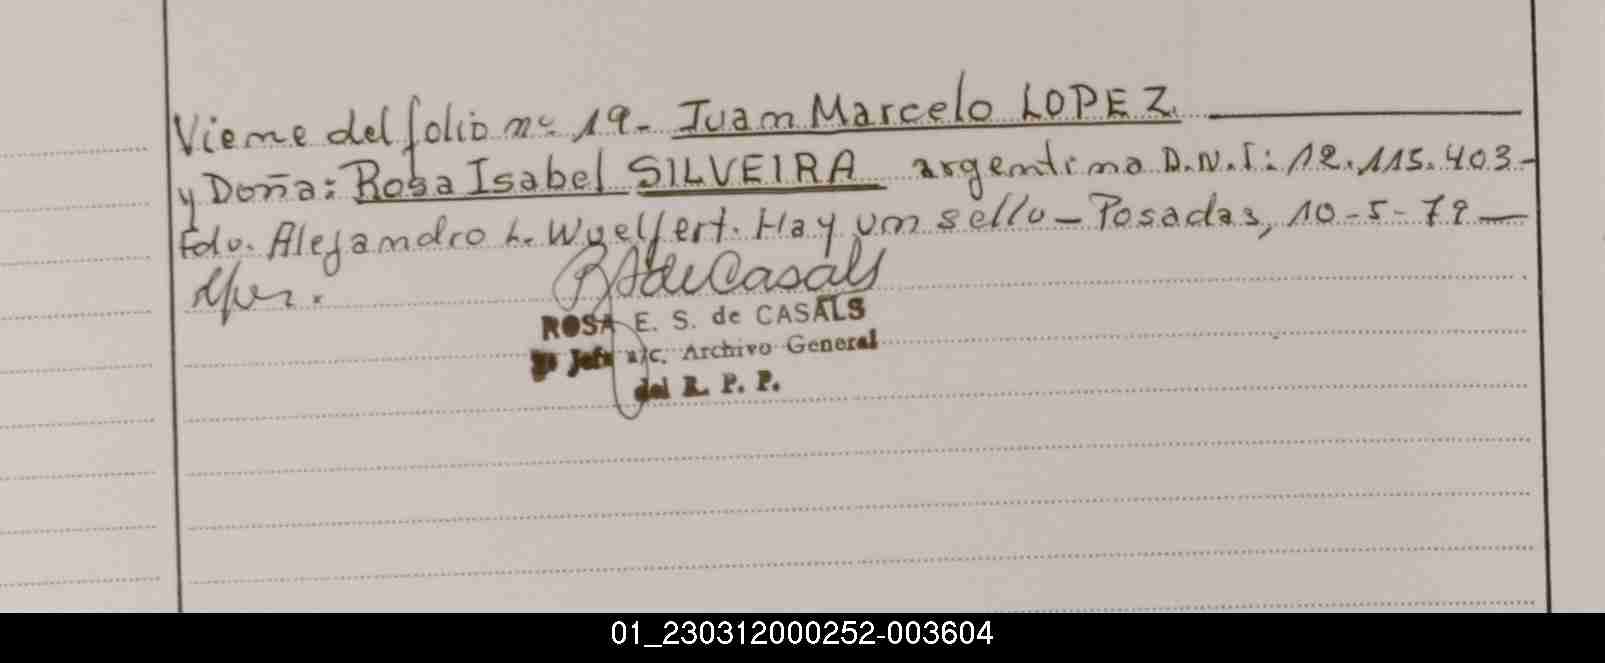 Viene del folio nº 19. Juan Marcelo LOPEZ.
y Doña: Rosa Isabel SILVEIRA argentina D.N.I: 12.115.403-
Fdo. Alejandro L. Wuelfert. Hay un sello - Posadas, 10-5-79
ROSA E. S. de CASALS
Jefe a/c. Archivo General
del R. P. P.
01_230312000252-003604